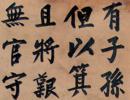 有子孫
但以箕
且將艱
無官守